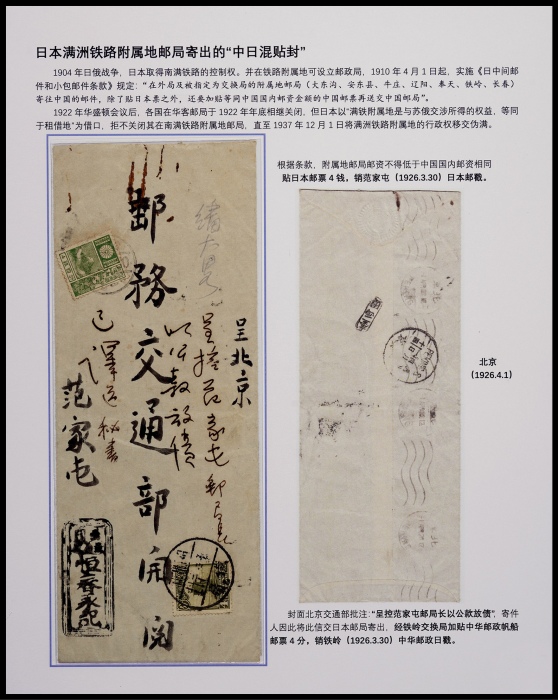 日本满洲铁路附属地邮局寄出的“中日混贴封”
1904 年日俄战争，日本取得南满铁路的控制权。并在铁路附属地可设立邮政局，1910 年 4 月 1 日起，实施《日中间邮
件和小包邮件条款》规定：“在外局及被指定为交换局的附属地邮局（大东沟、安东县、牛庄、辽阳、奉天、铁岭、长春）
寄往中国的邮件，除了贴日本票之外，还要加贴等同中国国内邮资金额的中国邮票再送交中国邮局”。
1922 年华盛顿会议后，各国在华客邮局于 1922 年年底相继关闭。但日本以“满铁附属地是与苏俄交涉所得的权益，等同
于租借地”为借口，拒不关闭其在南满铁路附属地邮局，直至 1937 年 12 月 1 日将满洲铁路附属地的行政权移交伪满。
根据条款，附属地邮局邮资不得低于中国国内邮资相同
贴日本邮票 4 钱，销范家屯（1926.3.30）日本邮戳。
呈北京
郵務交通部開閱
呈控范家屯郵局長
以公款放債
范家屯
恒春永記
北京
（1926.4.1）
封面北京交通部批注：“呈控范家屯邮局长以公款放债”，寄件
人因此将此信交日本邮局寄出，经铁岭交换局加贴中华邮政帆船
邮票 4 分，销铁岭（1926.3.30）中华邮政日戳。